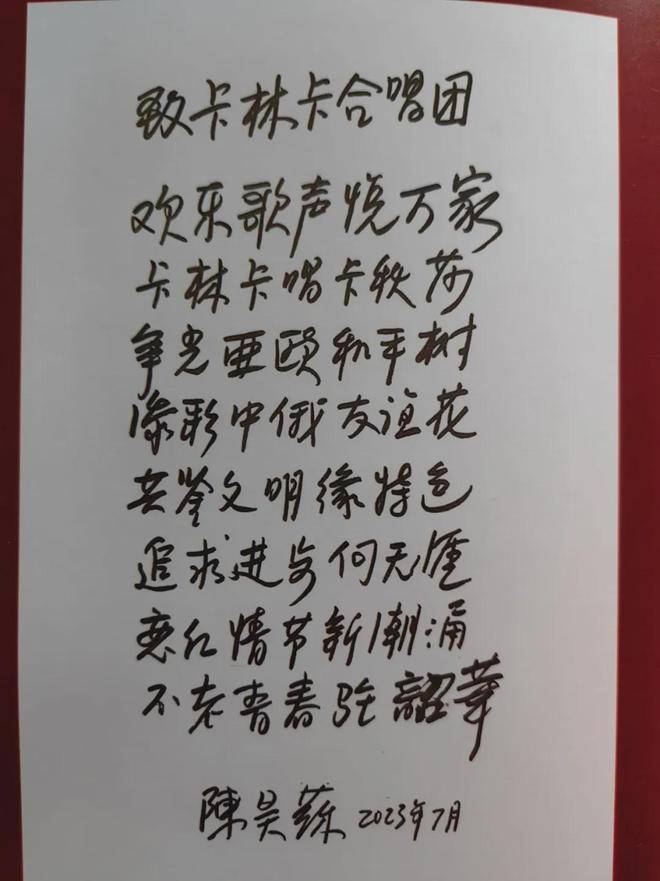 致卡林卡合唱团
欢乐歌声悦万家
卡林卡唱卡秋莎
争光亚欧和平树
添彩中俄友谊花
共鉴文明缘特色
追求进步何无涯
恋红情节新潮涌
不老青春驻韶华
陳吴蘇 2023年7月